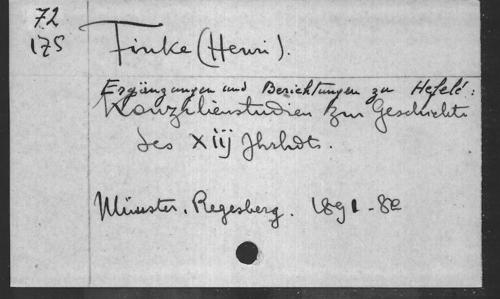 72
175
Finke (Henri).
Ergänzungen und Berichtungen zu Hefele:
Konzilienstudien zur Geschichte
des XIIJ Jhrhdts.
Münster, Regesberg. 1891 - 8º